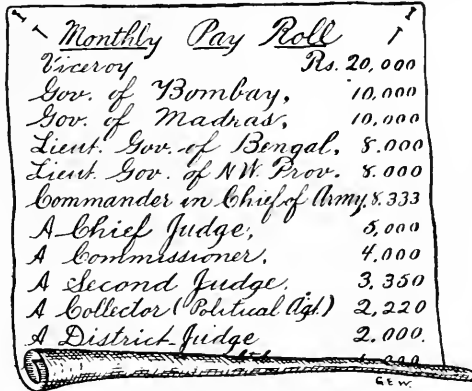 Monthly Pay Roll
Viceroy Rs. 20,000
Gov. of Bombay, 10,000
Gov. of Madras, 10,000
Lieut. Gov. of Bengal, 8.000
Lieut. Gov. of N.W. Prov. 8.000
Commander in Chief of Army. 8.333
A Chief Judge, 5,000
A Commissioner, 4,000
A Second Judge. 3,350
A Collector (Political Agt.) 2,220
A District Judge 2.000.
G.E.W.